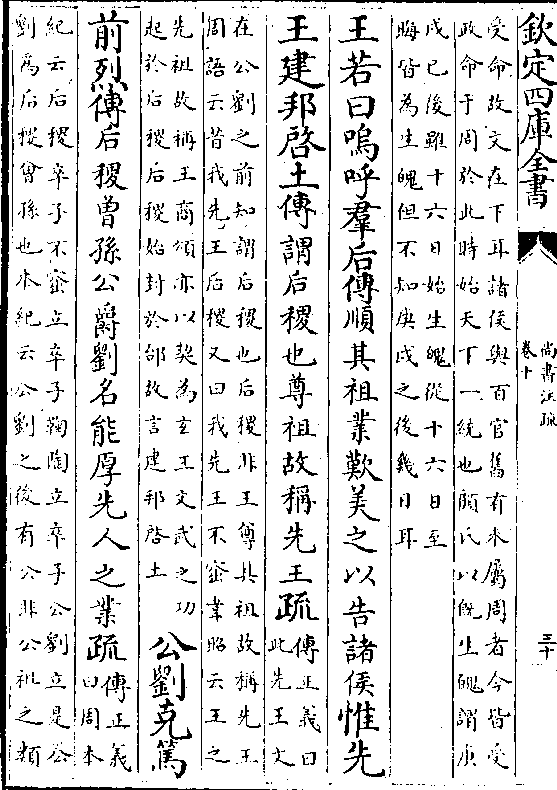 欽定四庫全書
尚書注疏
卷十
三十
受命故文在下耳諸侯與百官舊有未屬周者今皆受
政命于周於此時始天下一統也顏氏以既生魄謂庚
戌已後雖十六日始生魄從十六日至
晦皆為生魄但不知庚戌之後幾日耳
王若曰嗚呼羣后傳順其祖業歎美之以告諸侯惟先
王建邦啓土傳謂后稷也尊祖故稱先王疏
傳正義曰
此先王文
在公劉之前知謂后稷也后稷非王傳其祖故稱先王
周語云昔我先王后稷又曰我先王不窋韋昭云王之
先祖故稱王商頌亦以契為玄王文武之功
起於后稷后稷始封於邰故言建邦啓土
公劉克篤
前烈傳后稷曾孫公爵劉名能厚先人之業疏
傳正義
曰周本
紀云后稷卒子不窋立卒子鞠陶立卒子公劉立是公
劉為后稷曾孫也本紀云公劉之後有公非公祖之類